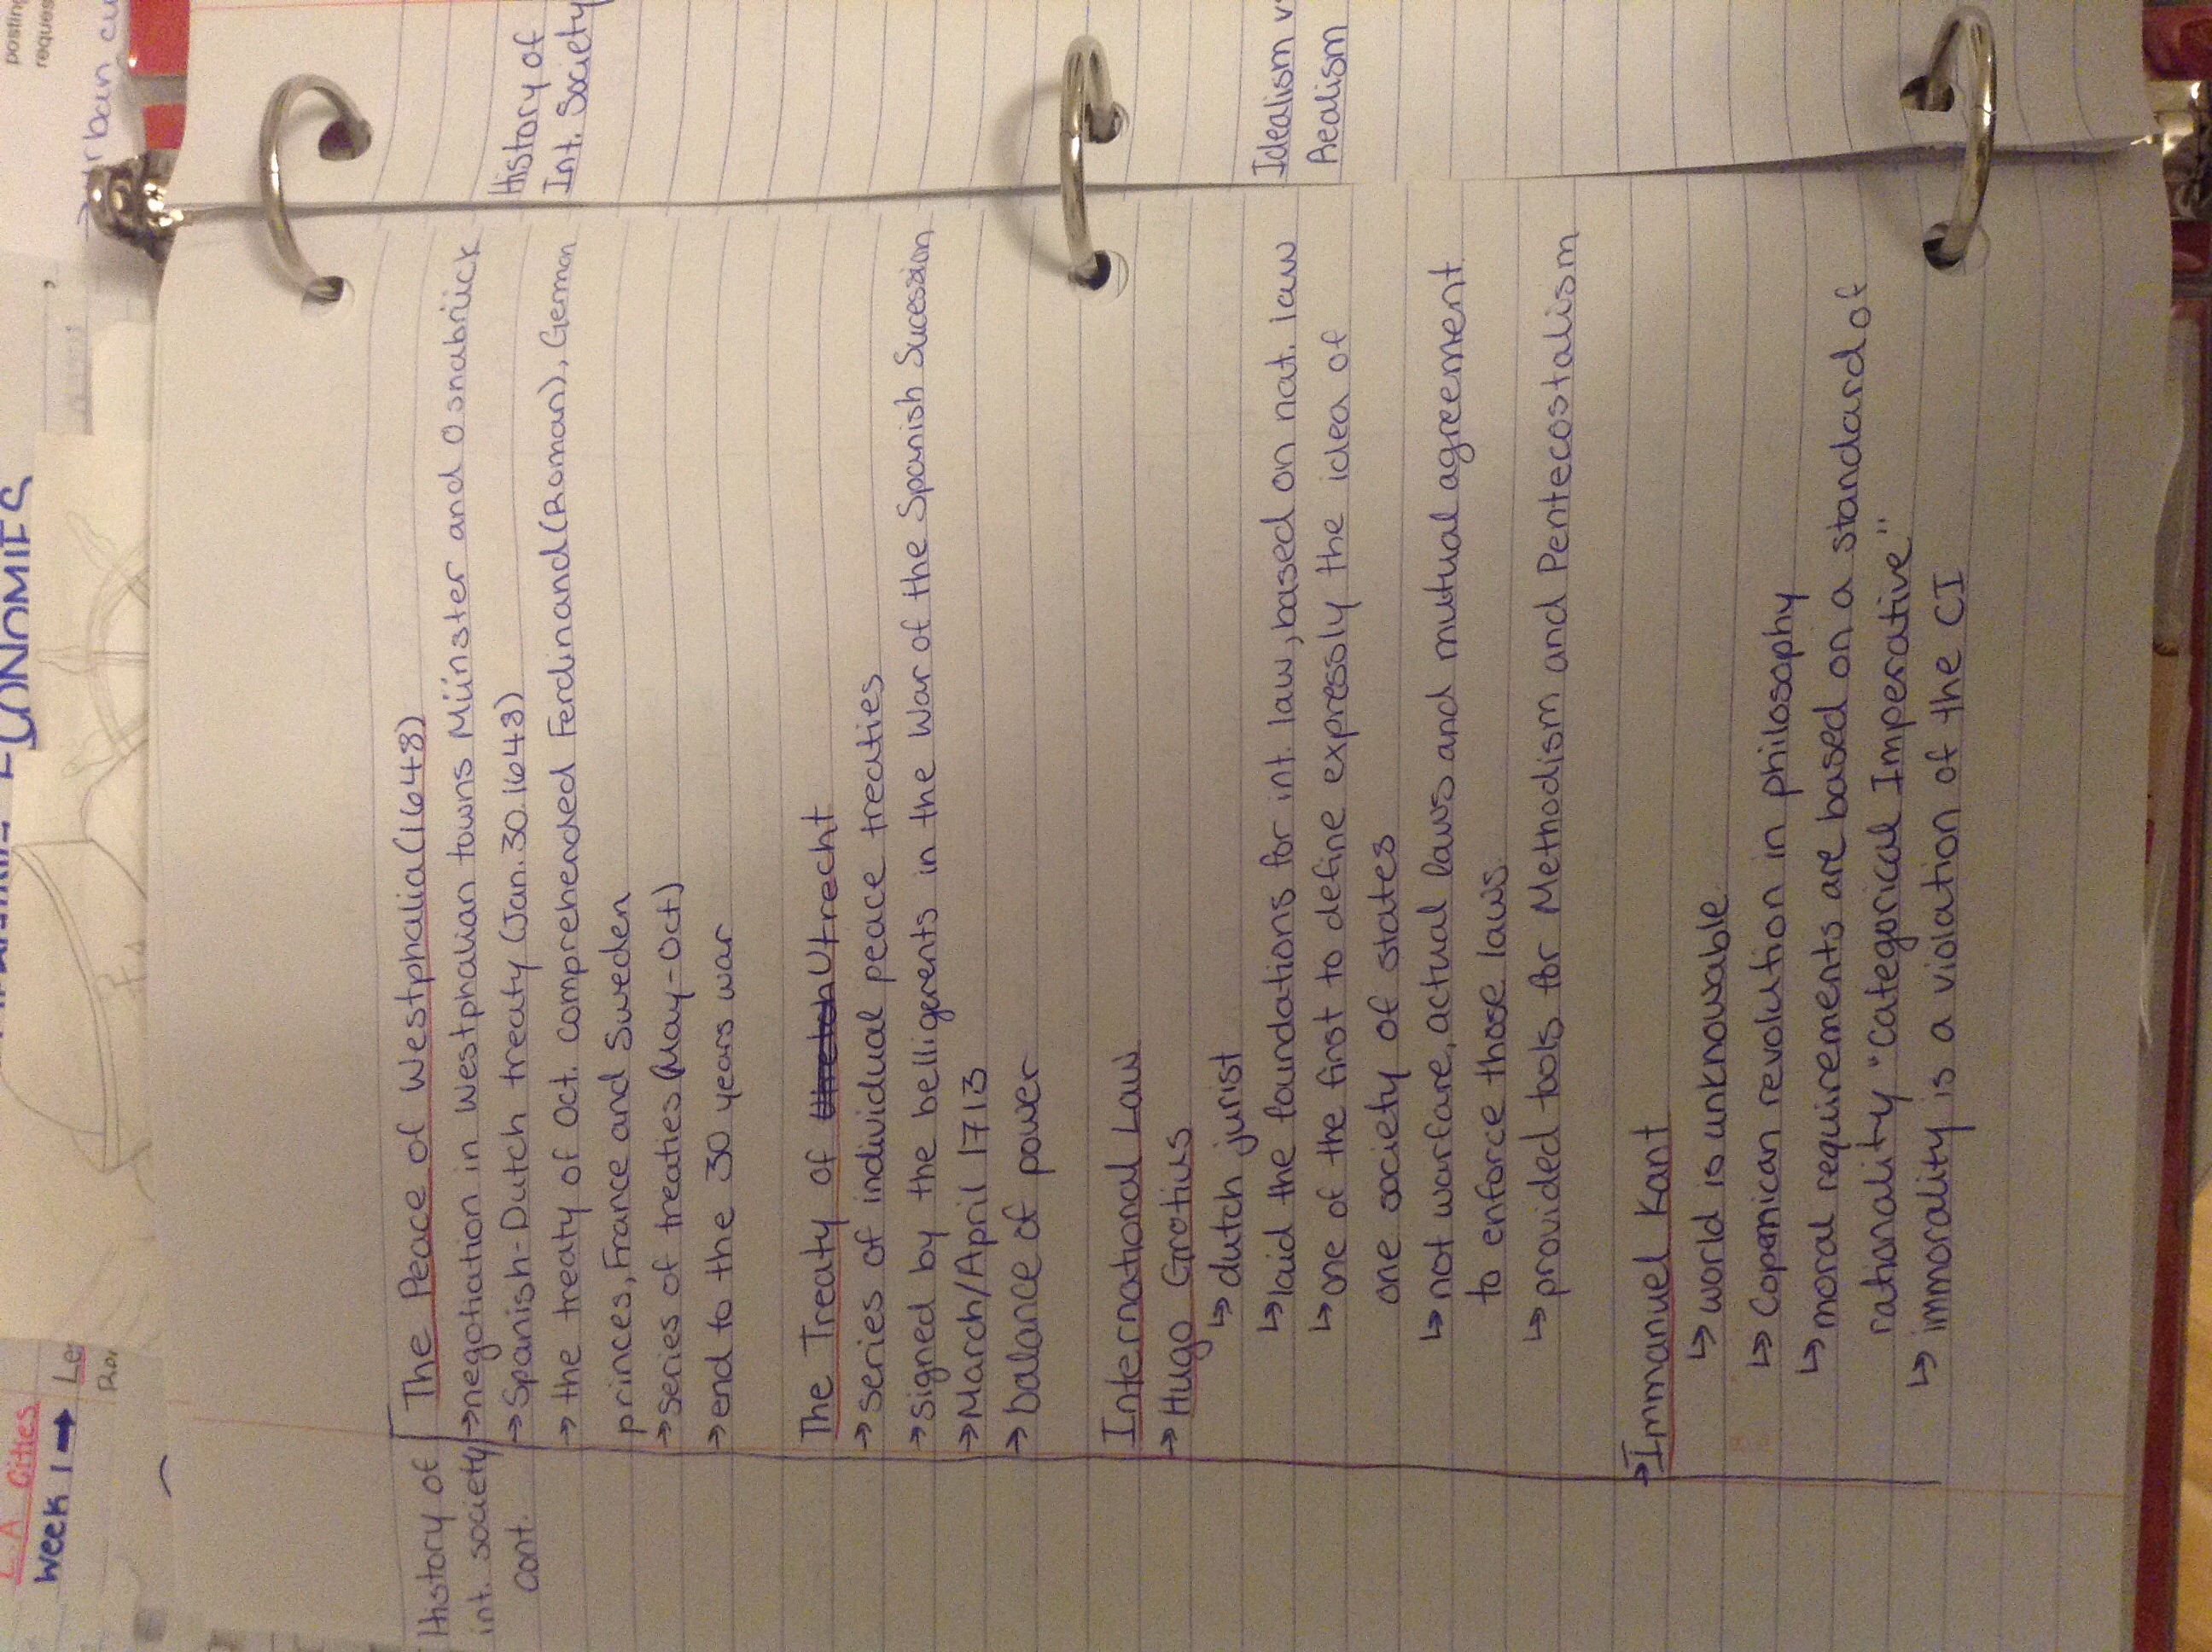 History of
int. society
cont.
The Peace of Westphalia (1648)
→ negotiation in Westphalian towns Münster and Osnabrück
→ Spanish-Dutch treaty (Jan. 30. 1648)
→ the treaty of Oct. comprehended Ferdinand (Roman), German
princes, France and Sweden
→ series of treaties (May-Oct)
→ end to the 30 years war
The Treaty of Utrecht
→ series of individual peace treaties
→ signed by the belligerents in the War of the Spanish Sucession
→ March/April 1713
→ balance of power
International Law
→ Hugo Grotius
↳ dutch jurist
↳ laid the foundations for int. law, based on nat. law
↳ one of the first to define expressly the idea of
one society of states
↳ not warfare, actual laws and mutual agreement
to enforce those laws
↳ provided tools for Methodism and Pentecostalism
→ Immanuel Kant
↳ world is unknowable
↳ Copernican revolution in philosophy
↳ moral requirements are based on a standard of
rationality "Categorical Imperative"
↳ immorality is a violation of the CI
History of
Int. Society
Idealism v
Realism
Cities
Week 1 →
posting
reques